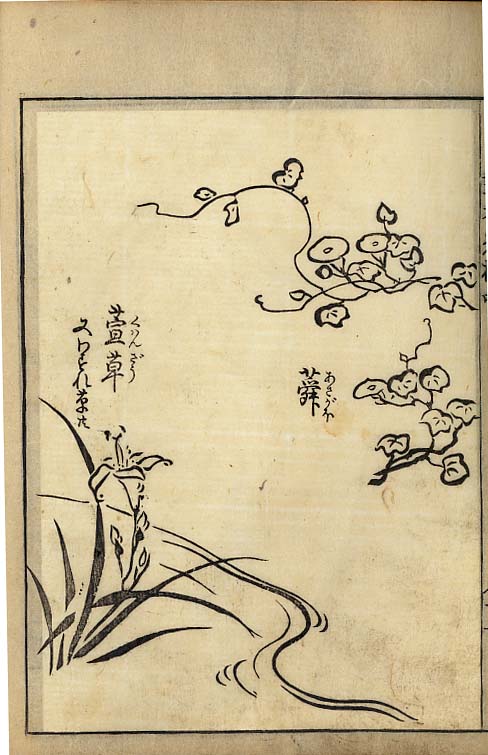 蕣
あさがほ
萱草
くわんざう
又わすれ草共